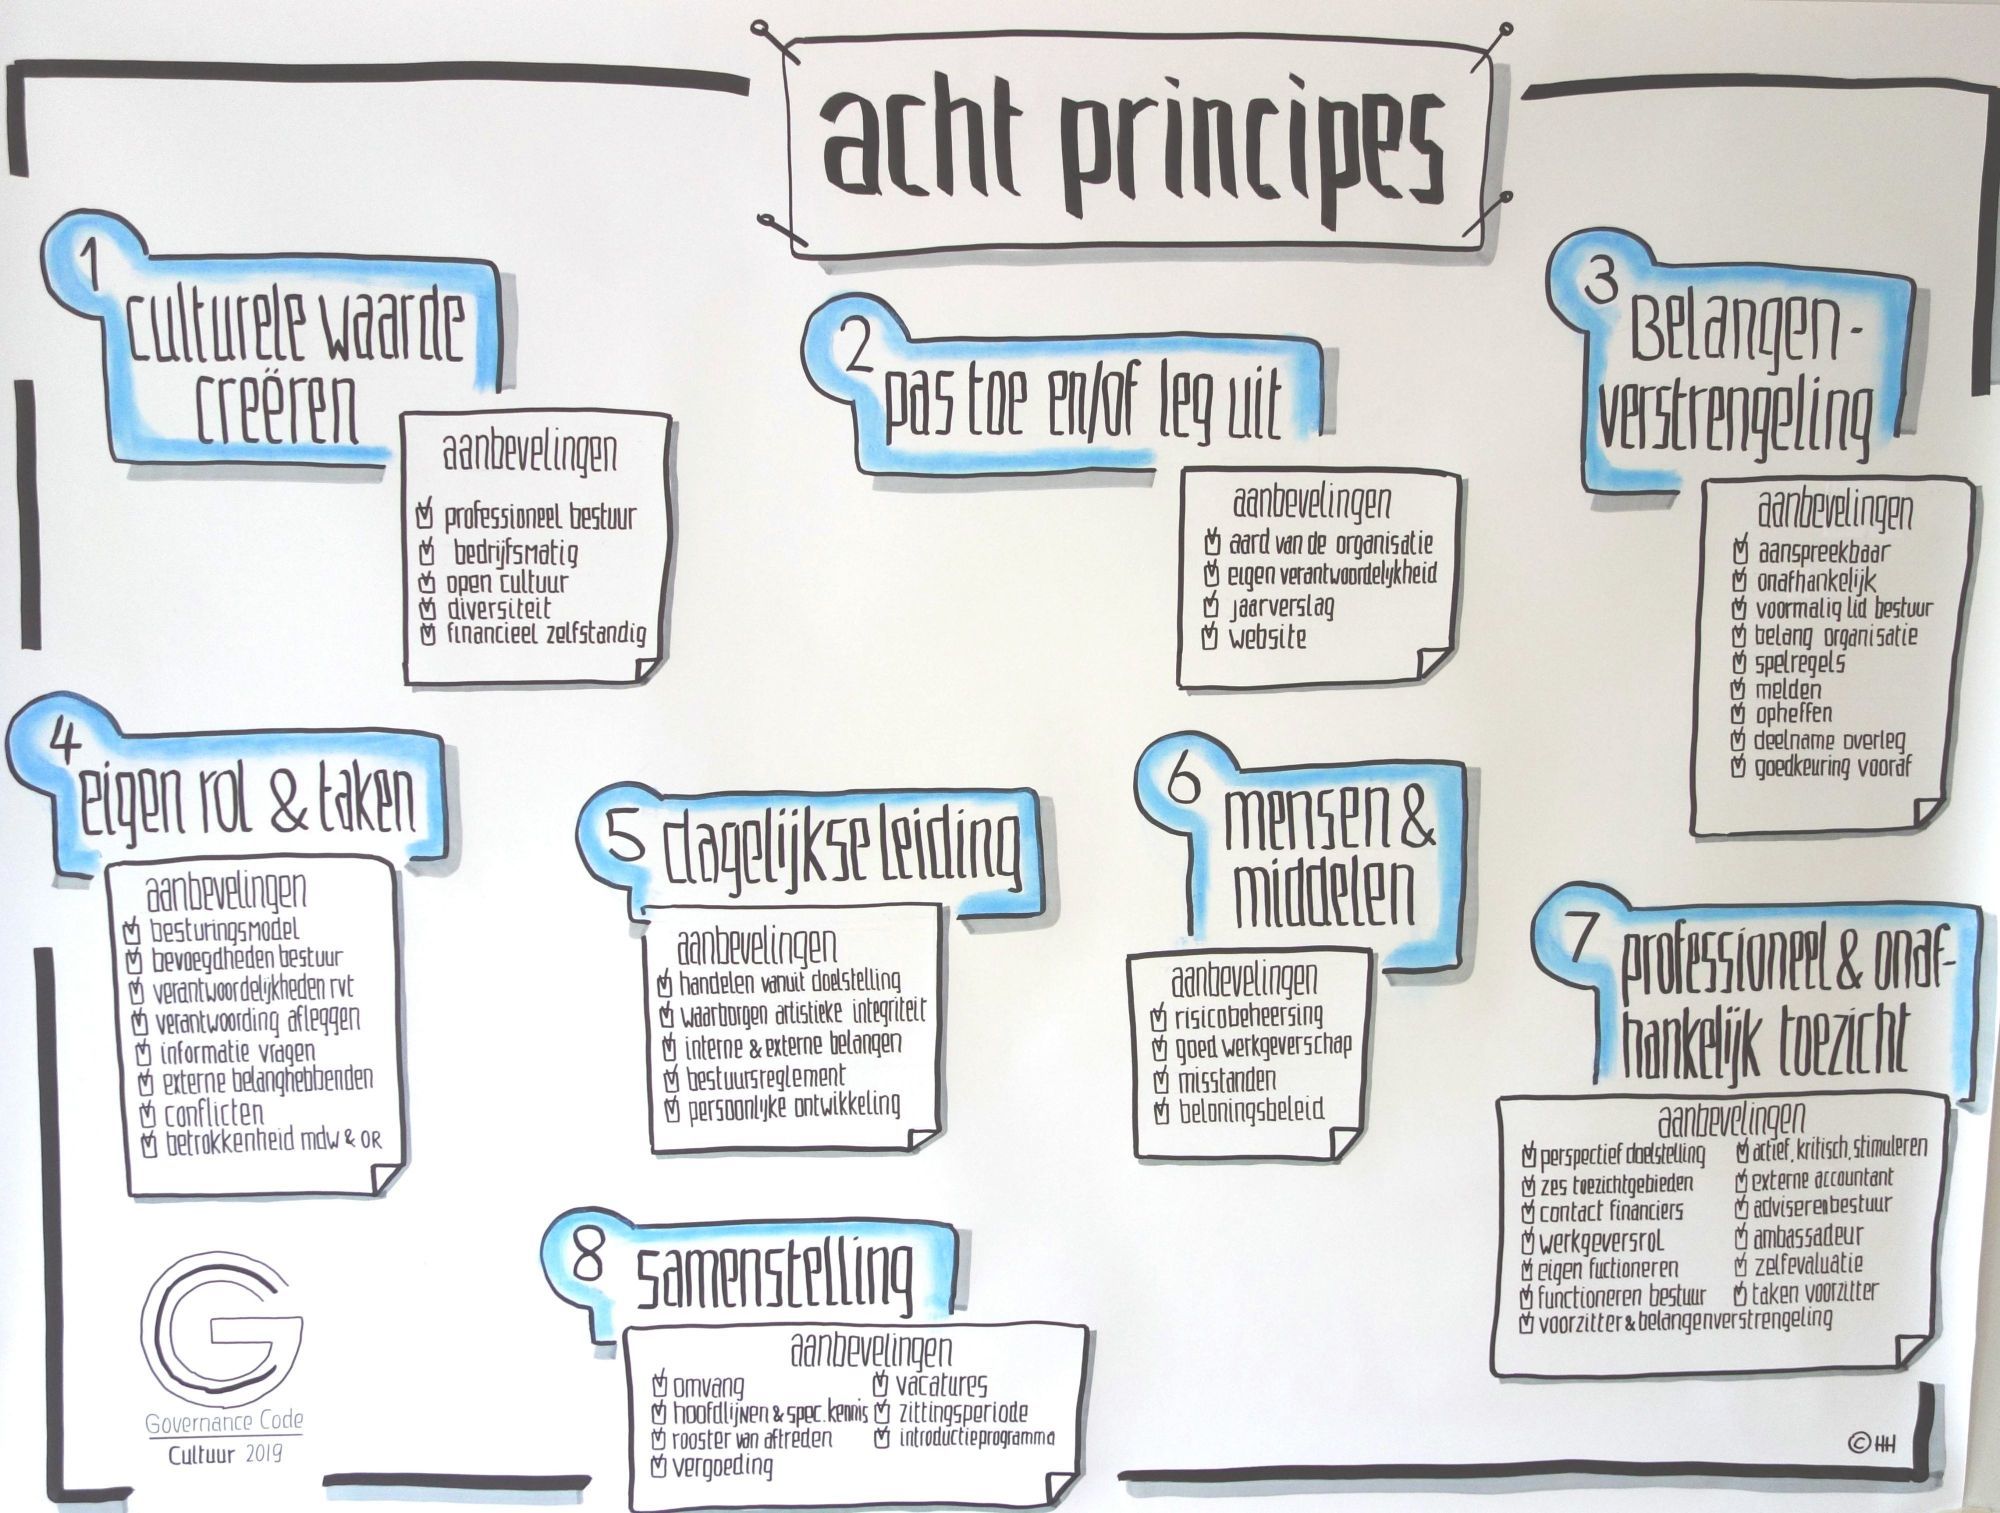 acht principes
1
culturele waarde
creëren
aanbevelingen
professioneel bestuur
bedrijfsmatig
open cultuur
diversiteit
financieel zelfstandig
2
pas toe en/of leg uit
aanbevelingen
aard van de organisatie
eigen verantwoordelijkheid
jaarverslag
website
3
Belangen-
verstrengeling
aanbevelingen
aanspreekbaar
onafhankelijk
voormalig lid bestuur
belang organisatie
spelregels
melden
opheffen
deelname overleg
goedkeuring vooraf
4
eigen rol & taken
aanbevelingen
besturingsmodel
bevoegdheden bestuur
verantwoordelijkheden rvt
verantwoording afleggen
informatie vragen
externe belanghebbenden
conflicten
betrokkenheid mdw & OR
5 dagelijkse leiding
aanbevelingen
handelen vanuit doelstelling
waarborgen artistieke integriteit
interne & externe belangen
bestuursreglement
persoonlijke ontwikkeling
6
mensen &
middelen
aanbevelingen
risicobeheersing
goed werkgeverschap
misstanden
beloningsbeleid
7
professioneel & onaf-
hankelijk toezicht
aanbevelingen
perspectief doelstelling
zes toezichtgebieden
contact financiers
werkgeversrol
eigen fuctioneren
functioneren bestuur
voorzitter & belangenverstrengeling
actief, kritisch, stimuleren
externe accountant
adviseren bestuur
ambassadeur
zelfevaluatie
taken voorzitter
8
samenstelling
aanbevelingen
omvang
hoofdlijnen & spec. kennis
rooster van aftreden
vergoeding
vacatures
zittingsperiode
introductieprogramma
GC
Governance Code
Cultuur 2019
© HH